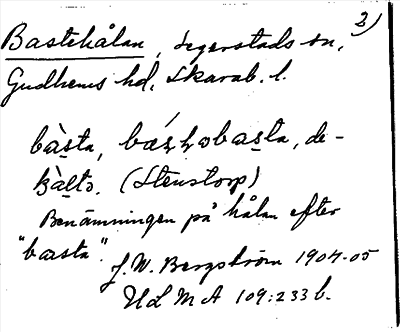 3)
Bastehålan, Segerstads sn,
Gudhems hd, Skarab. l.
bàsta, de-
(Stenstorp)
Benämningen på hålan efter
"basta".
J. W. Bergström 1904-05
ULMA 109:233 b.